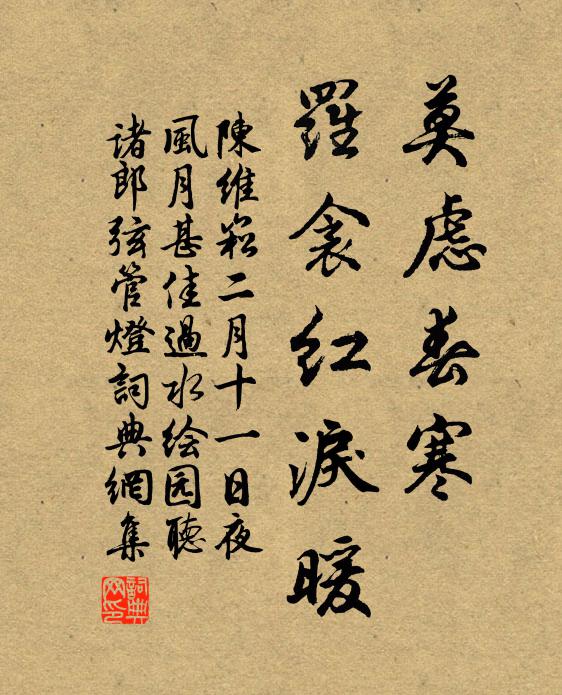 莫慮春寒
羅衾红淚暖
陳維崧二月十一日夜
風月甚佳過水绘园聽
诸郎弦管燈詞典網集
詞典
网印